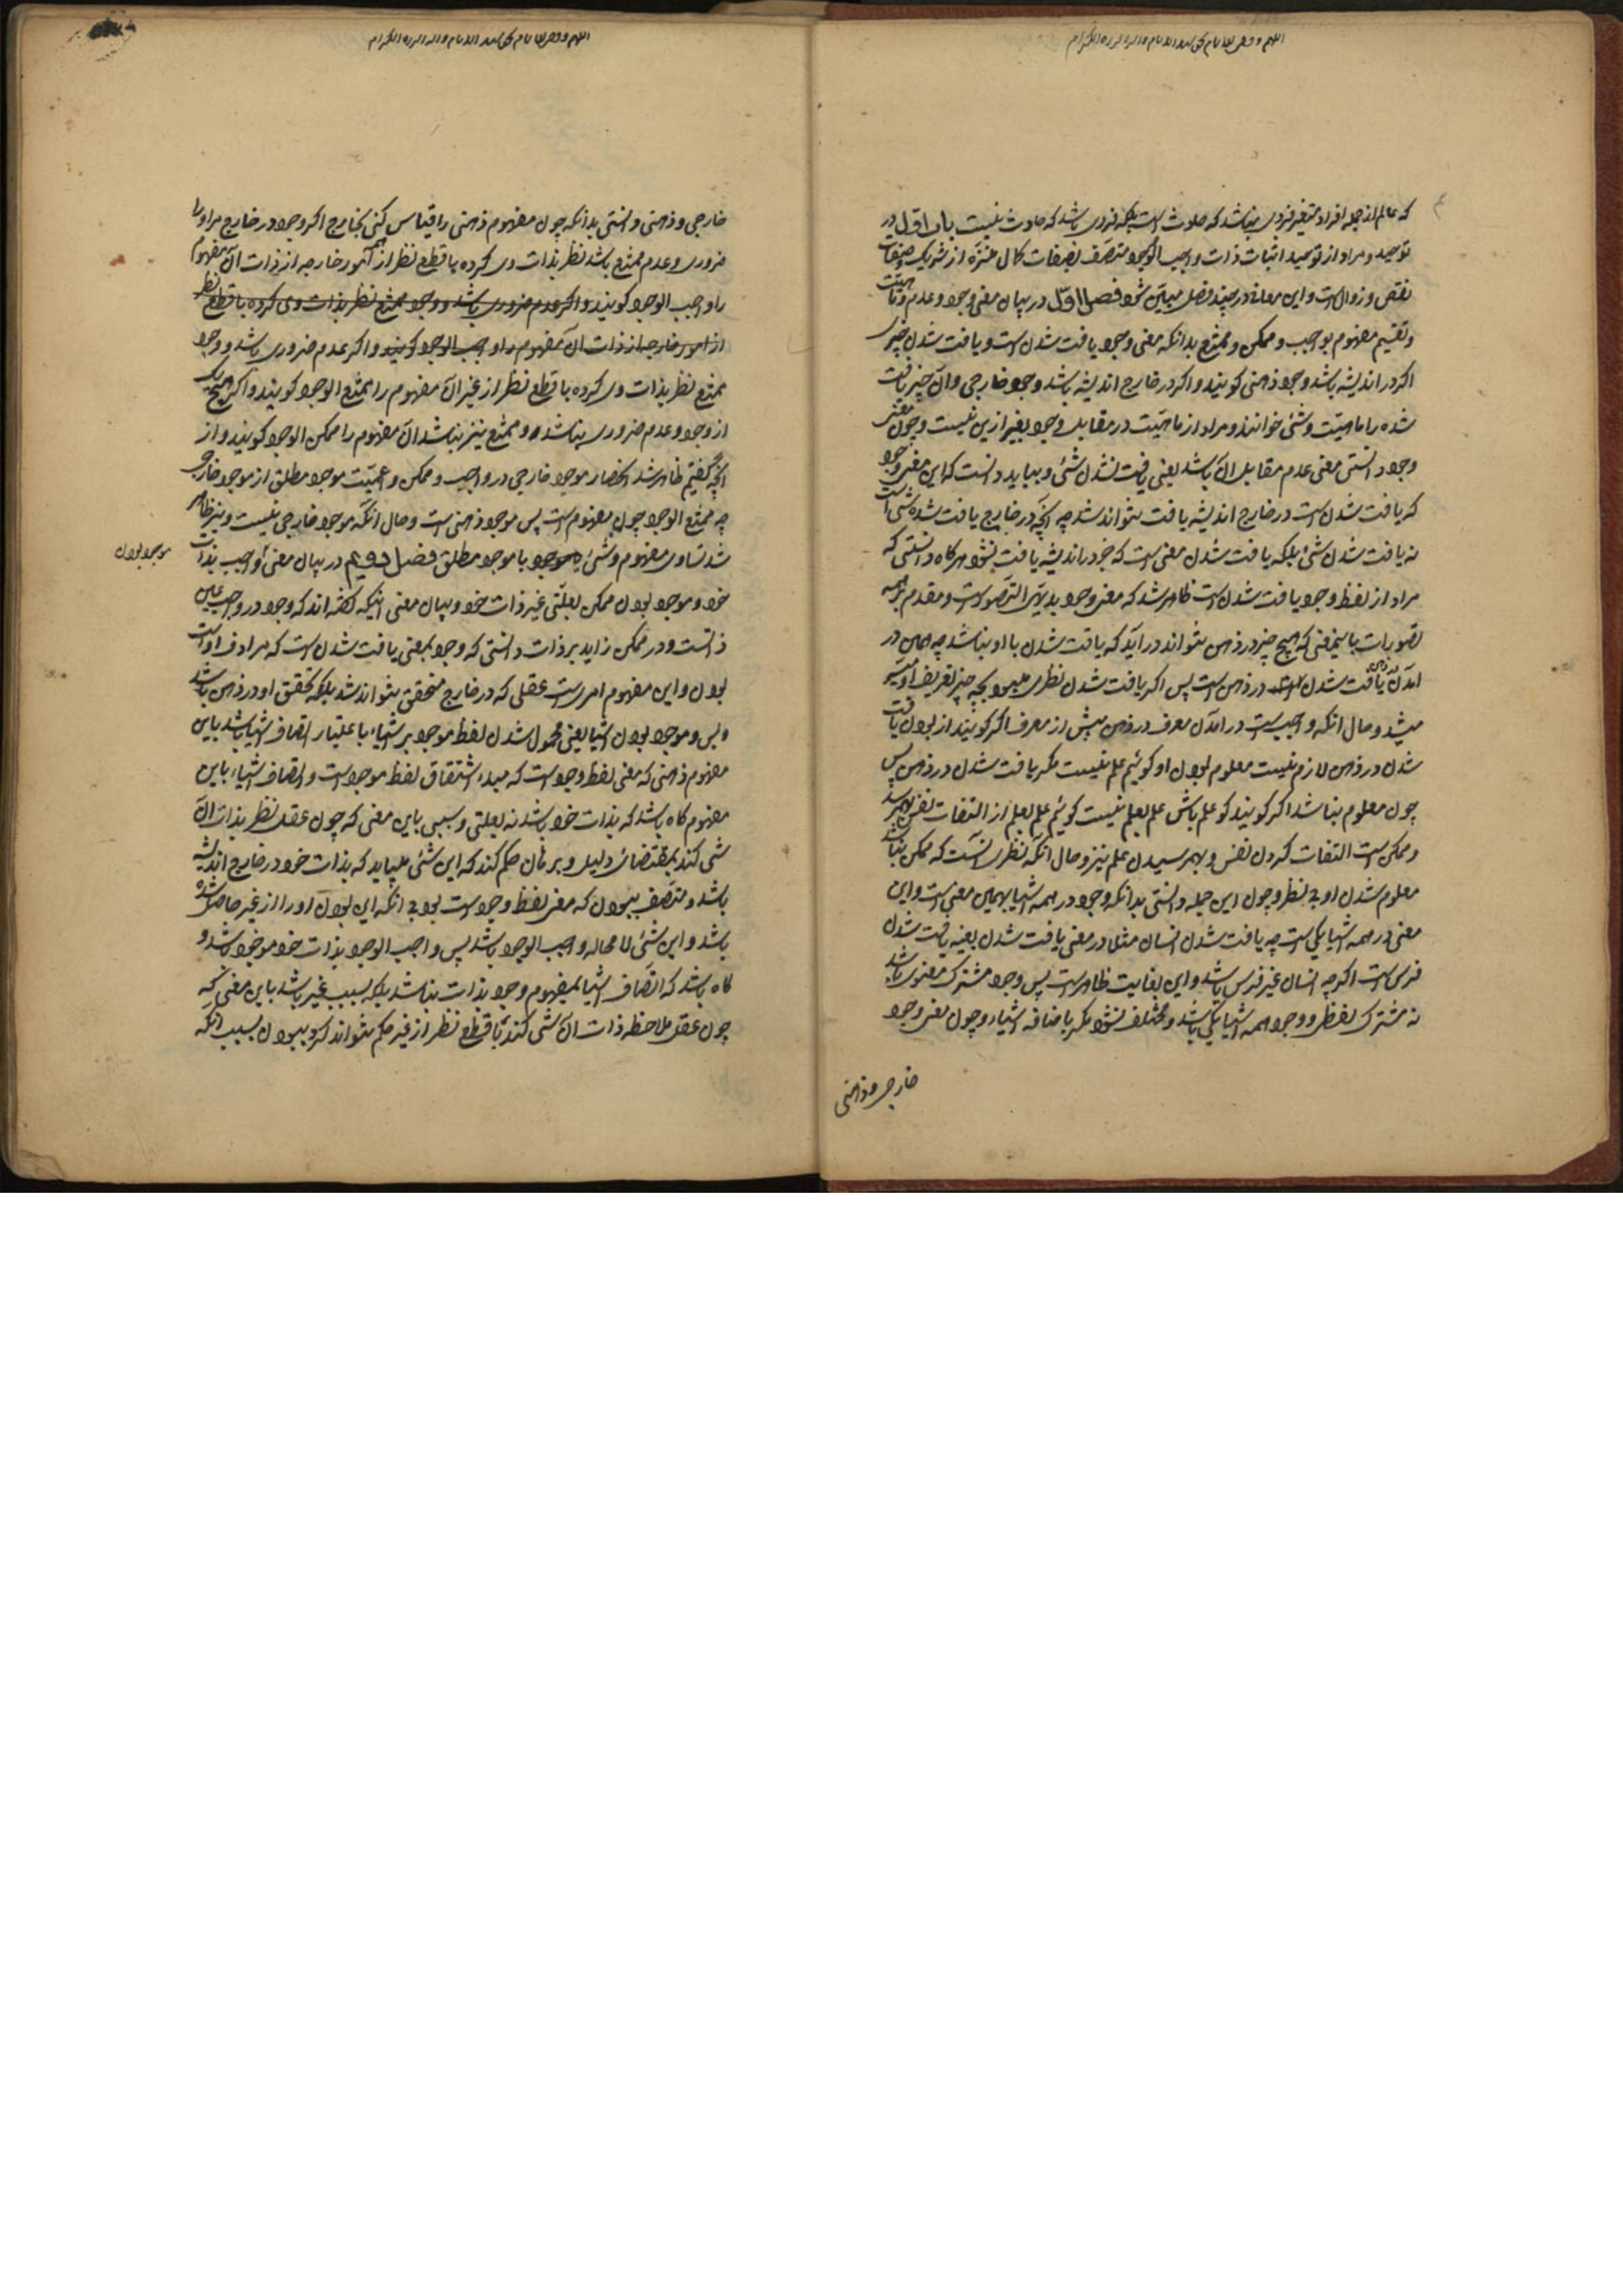 که عالم از جمله افراد متغیر فردی نباشد که حادث است بلکه فردی باشد که حادث نیست باب اول در
توحید و مراد از توحید اثبات ذات واجب الوجود متصف بصفات کمال منزه از شریک و صفات
نقص و زوال است و این معانی در چند فصل مبین شود فصل اول در بیان معنی وجود و عدم و ماهیت
و تقسیم مفهوم بواجب و ممکن و ممتنع بدانکه معنی وجود یافت شدن است و یافت شدن چیزی
اگر در اندیشه باشد وجود ذهنی کویند و اگر در خارج اندیشه باشد وجود خارجی و آن چیز یافت
شده را ماهیت و شئی خوانند و مراد از ماهیت در مقابل وجود بغیر ازین نیست و چون معنی
وجود دانستی معنی عدم مقابل آن باشد یعنی یافت نشدن شئی و بباید دانست که این معنی وجود
که یافت شدن است در خارج اندیشه یافت نتواند شد چه آنچه در خارج یافت شده شئی است
نه یافت شدن شئی بلکه یافت شدن معنی است که جز در اندیشه یافت نشود هرگاه دانستی که
مراد از لفظ وجود یافت شدن است ظاهر شد که معنی وجود بدیهی التصور است و مقدم بر همه
تصورات باینمعنی که هیچ چیز در ذهن نتواند در آید که یافت شدن با او نباشد چه همین در
آمدن یافت شدن است در ذهن است پس اگر یافت شدن نظری میبود بچه چیز تعریف او میسر
میشد و حال آنکه واجب است در آمدن معرف در ذهن پیش از معرف اگر کویند از بودن یافت
شدن در ذهن لازم نیست معلوم بودن او کوئیم علم نیست مکر یافت شدن در ذهن پس
چون معلوم نباشد اگر کویند کو علم باش علم بعلم نیست کوئیم علم بعلم از التفات نفس بهم رسد
و ممکن است التفات کردن نفس و بهم رسیدن علم نیز و حال آنکه نظری آنست که ممکن نباشد
معلوم شدن او بی نظر و چون این جمله دانستی بدانکه وجود در همه اشیا بهمین معنی است و این
معنی در همه اشیا یکی است چه یافت شدن انسان مثلا در معنی یافت شدن بعینه یافت شدن
فرس است اگرچه انسان غیر فرس باشد و این بغایت ظاهر است پس وجود مشترک معنوی باشد
نه مشترک لفظی و وجود همه اشیا یکی باشد و مختلف نشود مکر باضافه اشیاء و چون معنی وجود
خارجی و ذهنی
خارجی و ذهنی دانستی بدانکه چون مفهوم ذهنی را قیاس کنی بخارج اگر وجود در خارج مر او را
ضروری و عدم ممتنع باشد نظر بذات وی کرده با قطع نظر از امور خارجه از ذات آن مفهوم
را واجب الوجود کویند و اگر عدم ضروری باشد و وجود ممتنع نظر بذات وی کرده با قطع نظر
از امور خارجه از ذات آن مفهوم را واجب الوجود کویند و اگر عدم ضروری باشد و وجود
ممتنع نظر بذات وی کرده با قطع نظر از غیر آن مفهوم را ممتنع الوجود کویند و اگر هیچ یک
از وجود و عدم ضروری نباشد و ممتنع نیز نباشد آن مفهوم را ممکن الوجود کویند و از
آنچه گفتیم ظاهر شد انحصار موجود خارجی در واجب و ممکن و اعمیت موجود مطلق از موجود خارجی
چه ممتنع الوجود چون مفهوم است پس موجود ذهنی است و حال آنکه موجود خارجی نیست و نیز ظاهر
شد تساوی مفهوم و شئی و موجود با موجود مطلق فصل دویم در بیان معنی واجب بذات
موجود بودن
خود و موجود بودن ممکن بعلتی غیر ذات خود و بیان معنی اینکه گفته اند که وجود در واجب عین
ذاتست و در ممکن زاید بر ذات دانستی که وجود بمعنی یافت شدن است که مرادف او است
بودن و این مفهوم امریست عقلی که در خارج متحقق نتواند شد بلکه تحقق او در ذهن باشد
و بس و موجود بودن اشیا یعنی محمول شدن لفظ موجود بر اشیاء باعتبار اتصاف اشیا باشد باین
مفهوم ذهنی که معنی لفظ وجود است که مبدء اشتقاق لفظ موجود است و اتصاف اشیاء باین
مفهوم کاه باشد که بذات خود باشد نه بعلتی و سببی باین معنی که چون عقل نظر بذات آن
شئی کند بمقتضای دلیل و برهان حکم کند که این شئی میباید که بذات خود در خارج اندیشه
باشد و متصف ببودن که معنی لفظ وجود است بود بی آنکه این بودن او را از غیر حاصل شده
باشد و این شئی لا محاله واجب الوجود باشد پس واجب الوجود بذات خود موجود باشد و
کاه باشد که اتصاف اشیا بمفهوم وجود بذات نباشد بلکه بسبب غیر باشد باین معنی که
چون عقل ملاحظه ذات آن شئی کند با قطع نظر از غیر حکم نتواند کرد ببودن بسبب آنکه